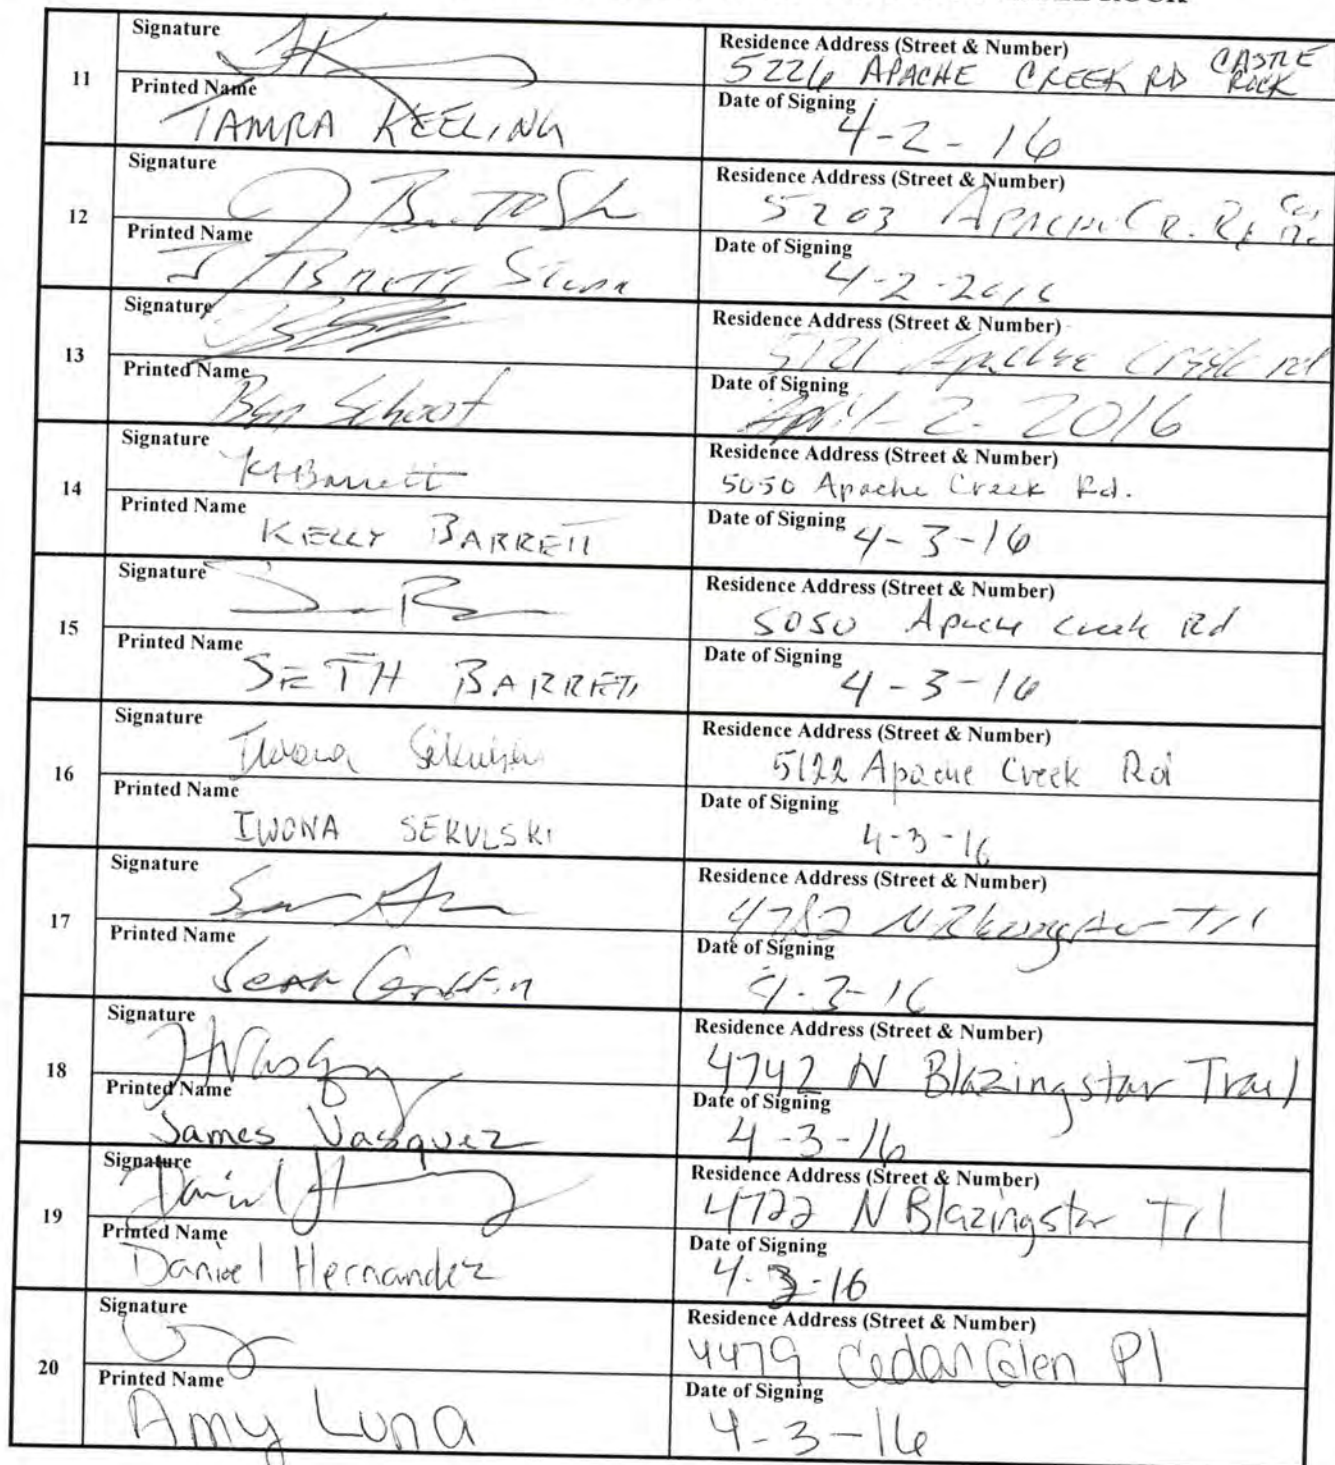 Signature
Residence Address (Street & Number)
5226 APACHE CREEK RD CASTLE ROCK
11
Printed Name
TAMRA KEELING
Date of Signing
4-2-16
Signature
Residence Address (Street & Number)
5203 APACHE CR. Rd
12
Printed Name
J BRETT
Date of Signing
4-2-2016
Signature
Residence Address (Street & Number)
5121 Apache Creek rd
13
Printed Name
Ben Schoot
Date of Signing
April 2. 2016
Signature
KHBarrett
Residence Address (Street & Number)
5050 Apache Creek Rd.
14
Printed Name
KELLY BARRETT
Date of Signing
4-3-16
Signature
Residence Address (Street & Number)
5050 Apache Creek Rd
15
Printed Name
SETH BARRETT
Date of Signing
4-3-16
Signature
Iwona Sekulski
Residence Address (Street & Number)
5122 Apache Creek Rd
16
Printed Name
IWONA SEKULSKI
Date of Signing
4-3-16
Signature
Residence Address (Street & Number)
4782 N Blazingstar Trl
17
Printed Name
Sean Griffin
Date of Signing
4-3-16
Signature
Residence Address (Street & Number)
4742 N Blazingstar Trail
18
Printed Name
James Vasquez
Date of Signing
4-3-16
Signature
Daniel
Residence Address (Street & Number)
4722 N Blazingstar Trl
19
Printed Name
Daniel Hernandez
Date of Signing
4-3-16
Signature
Residence Address (Street & Number)
4479 Cedar Glen Pl
20
Printed Name
Amy Luna
Date of Signing
4-3-16